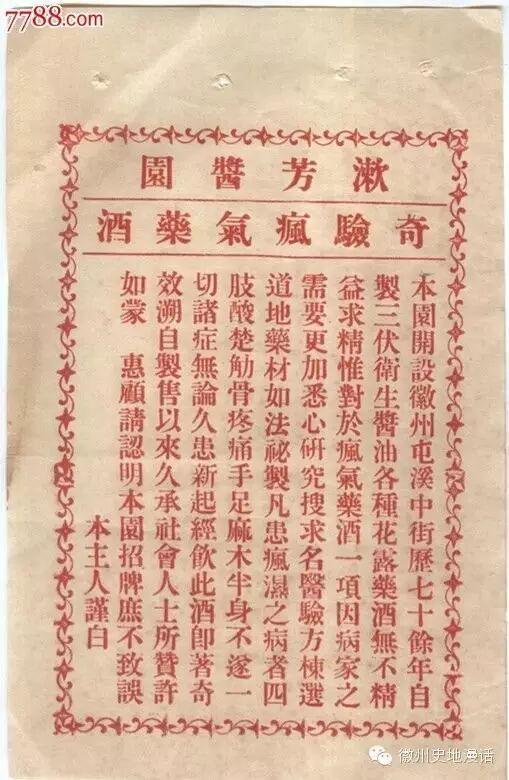 7788.com
漱芳醬園
奇驗瘋氣藥酒
本園開設徽州屯溪中街歷七十餘年自
製三伏衛生醬油各種花露藥酒無不精
益求精惟對於瘋氣藥酒一項因病家之
需要更加悉心研究搜求名醫驗方棟選
道地藥材如法祕製凡患瘋濕之病者四
肢酸楚觔骨疼痛手足麻木半身不遂一
切諸症無論久患新起經飲此酒卽著奇
效溯自製售以來久承社會人士所贊許
如蒙　惠顧請認明本園招牌庶不致誤
本主人謹白
徽州史地漫话